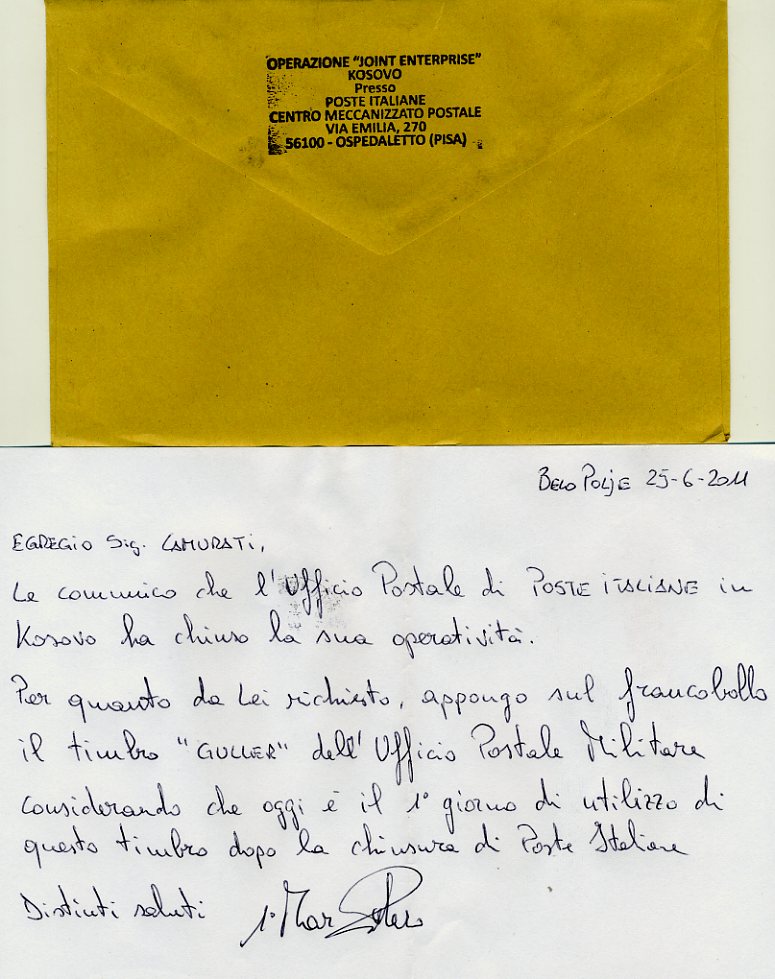 OPERAZIONE "JOINT ENTERPRISE"
KOSOVO
Presso
POSTE ITALIANE
CENTRO MECCANIZZATO POSTALE
VIA EMILIA, 270
56100 - OSPEDALETTO (PISA)
BELO POLJE 25-6-2011
EGREGIO Sig. CAMURATI,
Le comunico che l'Ufficio Postale di POSTE ITALIANE in
Kosovo ha chiuso la sua operatività.
Per quanto da Lei richiesto, appongo sul francobollo
il timbro "GULLER" dell'Ufficio Postale Militare
considerando che oggi è il 1° giorno di utilizzo di
questo timbro dopo la chiusura di Poste Italiane
Distinti saluti 1° Mar